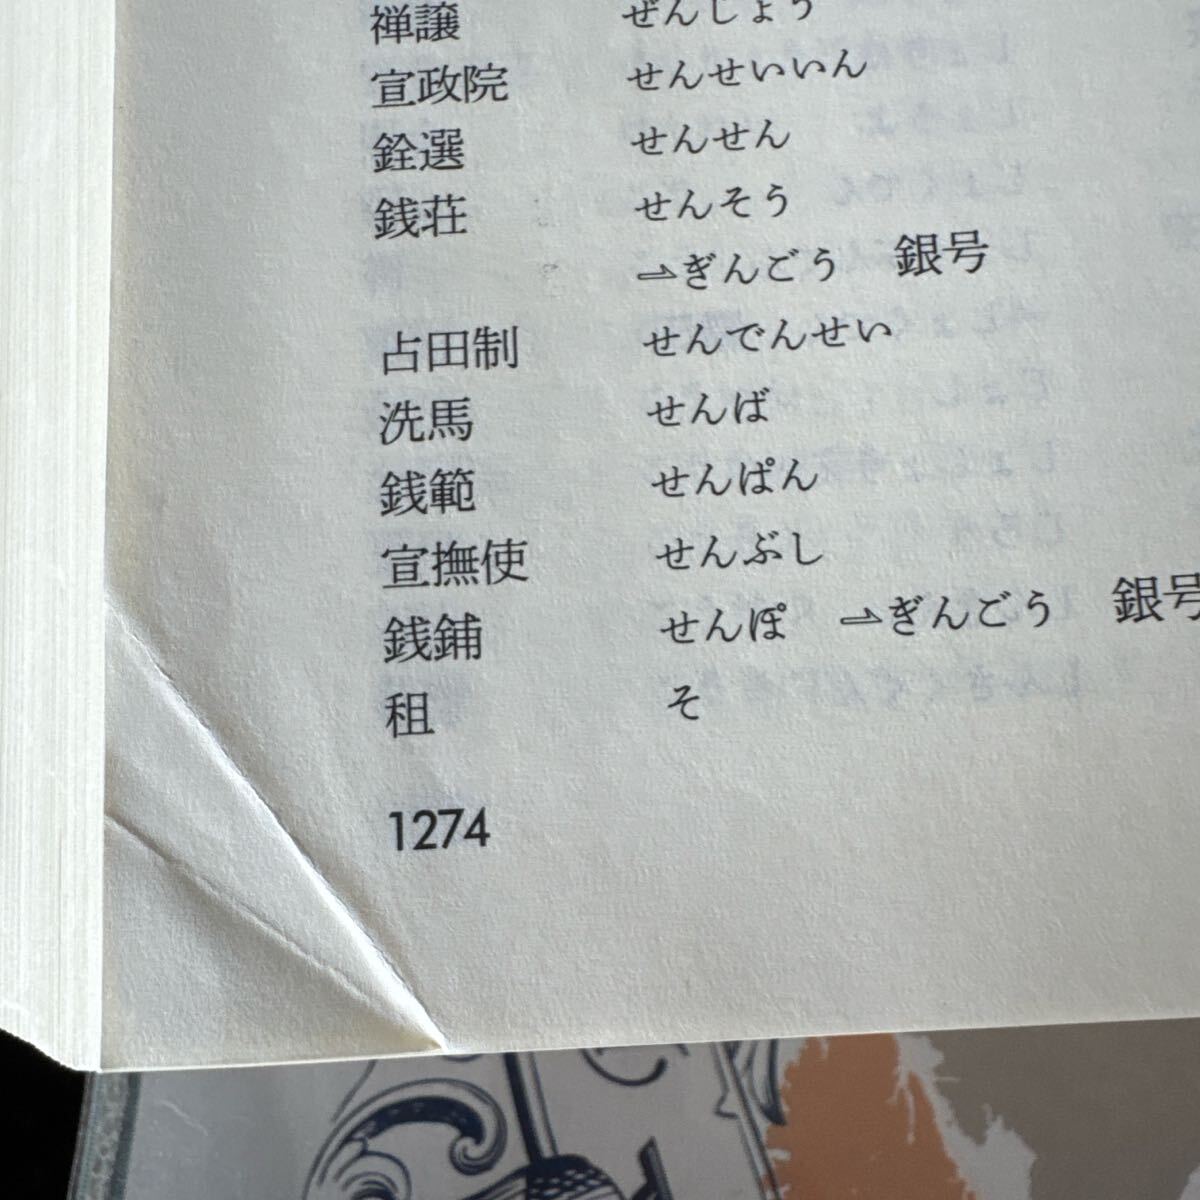 禅譲 ぜんじょう
宣政院 せんせいいん
銓選 せんせん
銭荘 せんそう
⇀ぎんごう 銀号
占田制 せんでんせい
洗馬 せんば
銭範 せんぱん
宣撫使 せんぶし
銭鋪 せんぽ ⇀ぎんごう 銀号
租 そ
1274